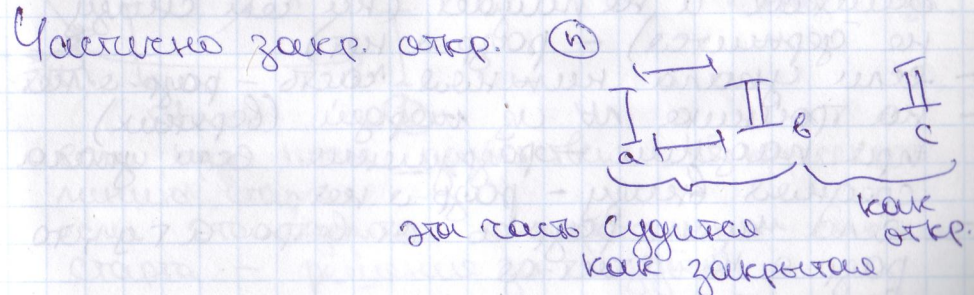 Частично закр. откр. (n)
I II II
а в с
эта часть судится как
как закрытая откр.